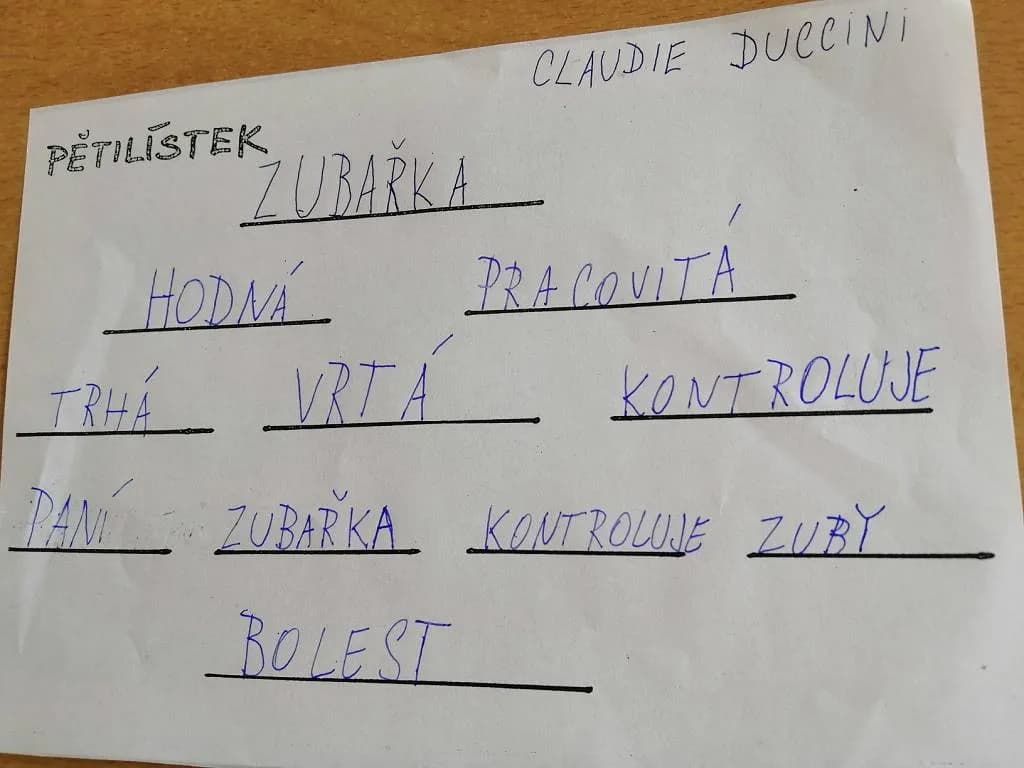 CLAUDIE DUCCINI
PĚTILÍSTEK
ZUBAŘKA
HODNÁ PRACOVITÁ
TRHÁ VRTÁ KONTROLUJE
PANÍ ZUBAŘKA KONTROLUJE ZUBY
BOLEST